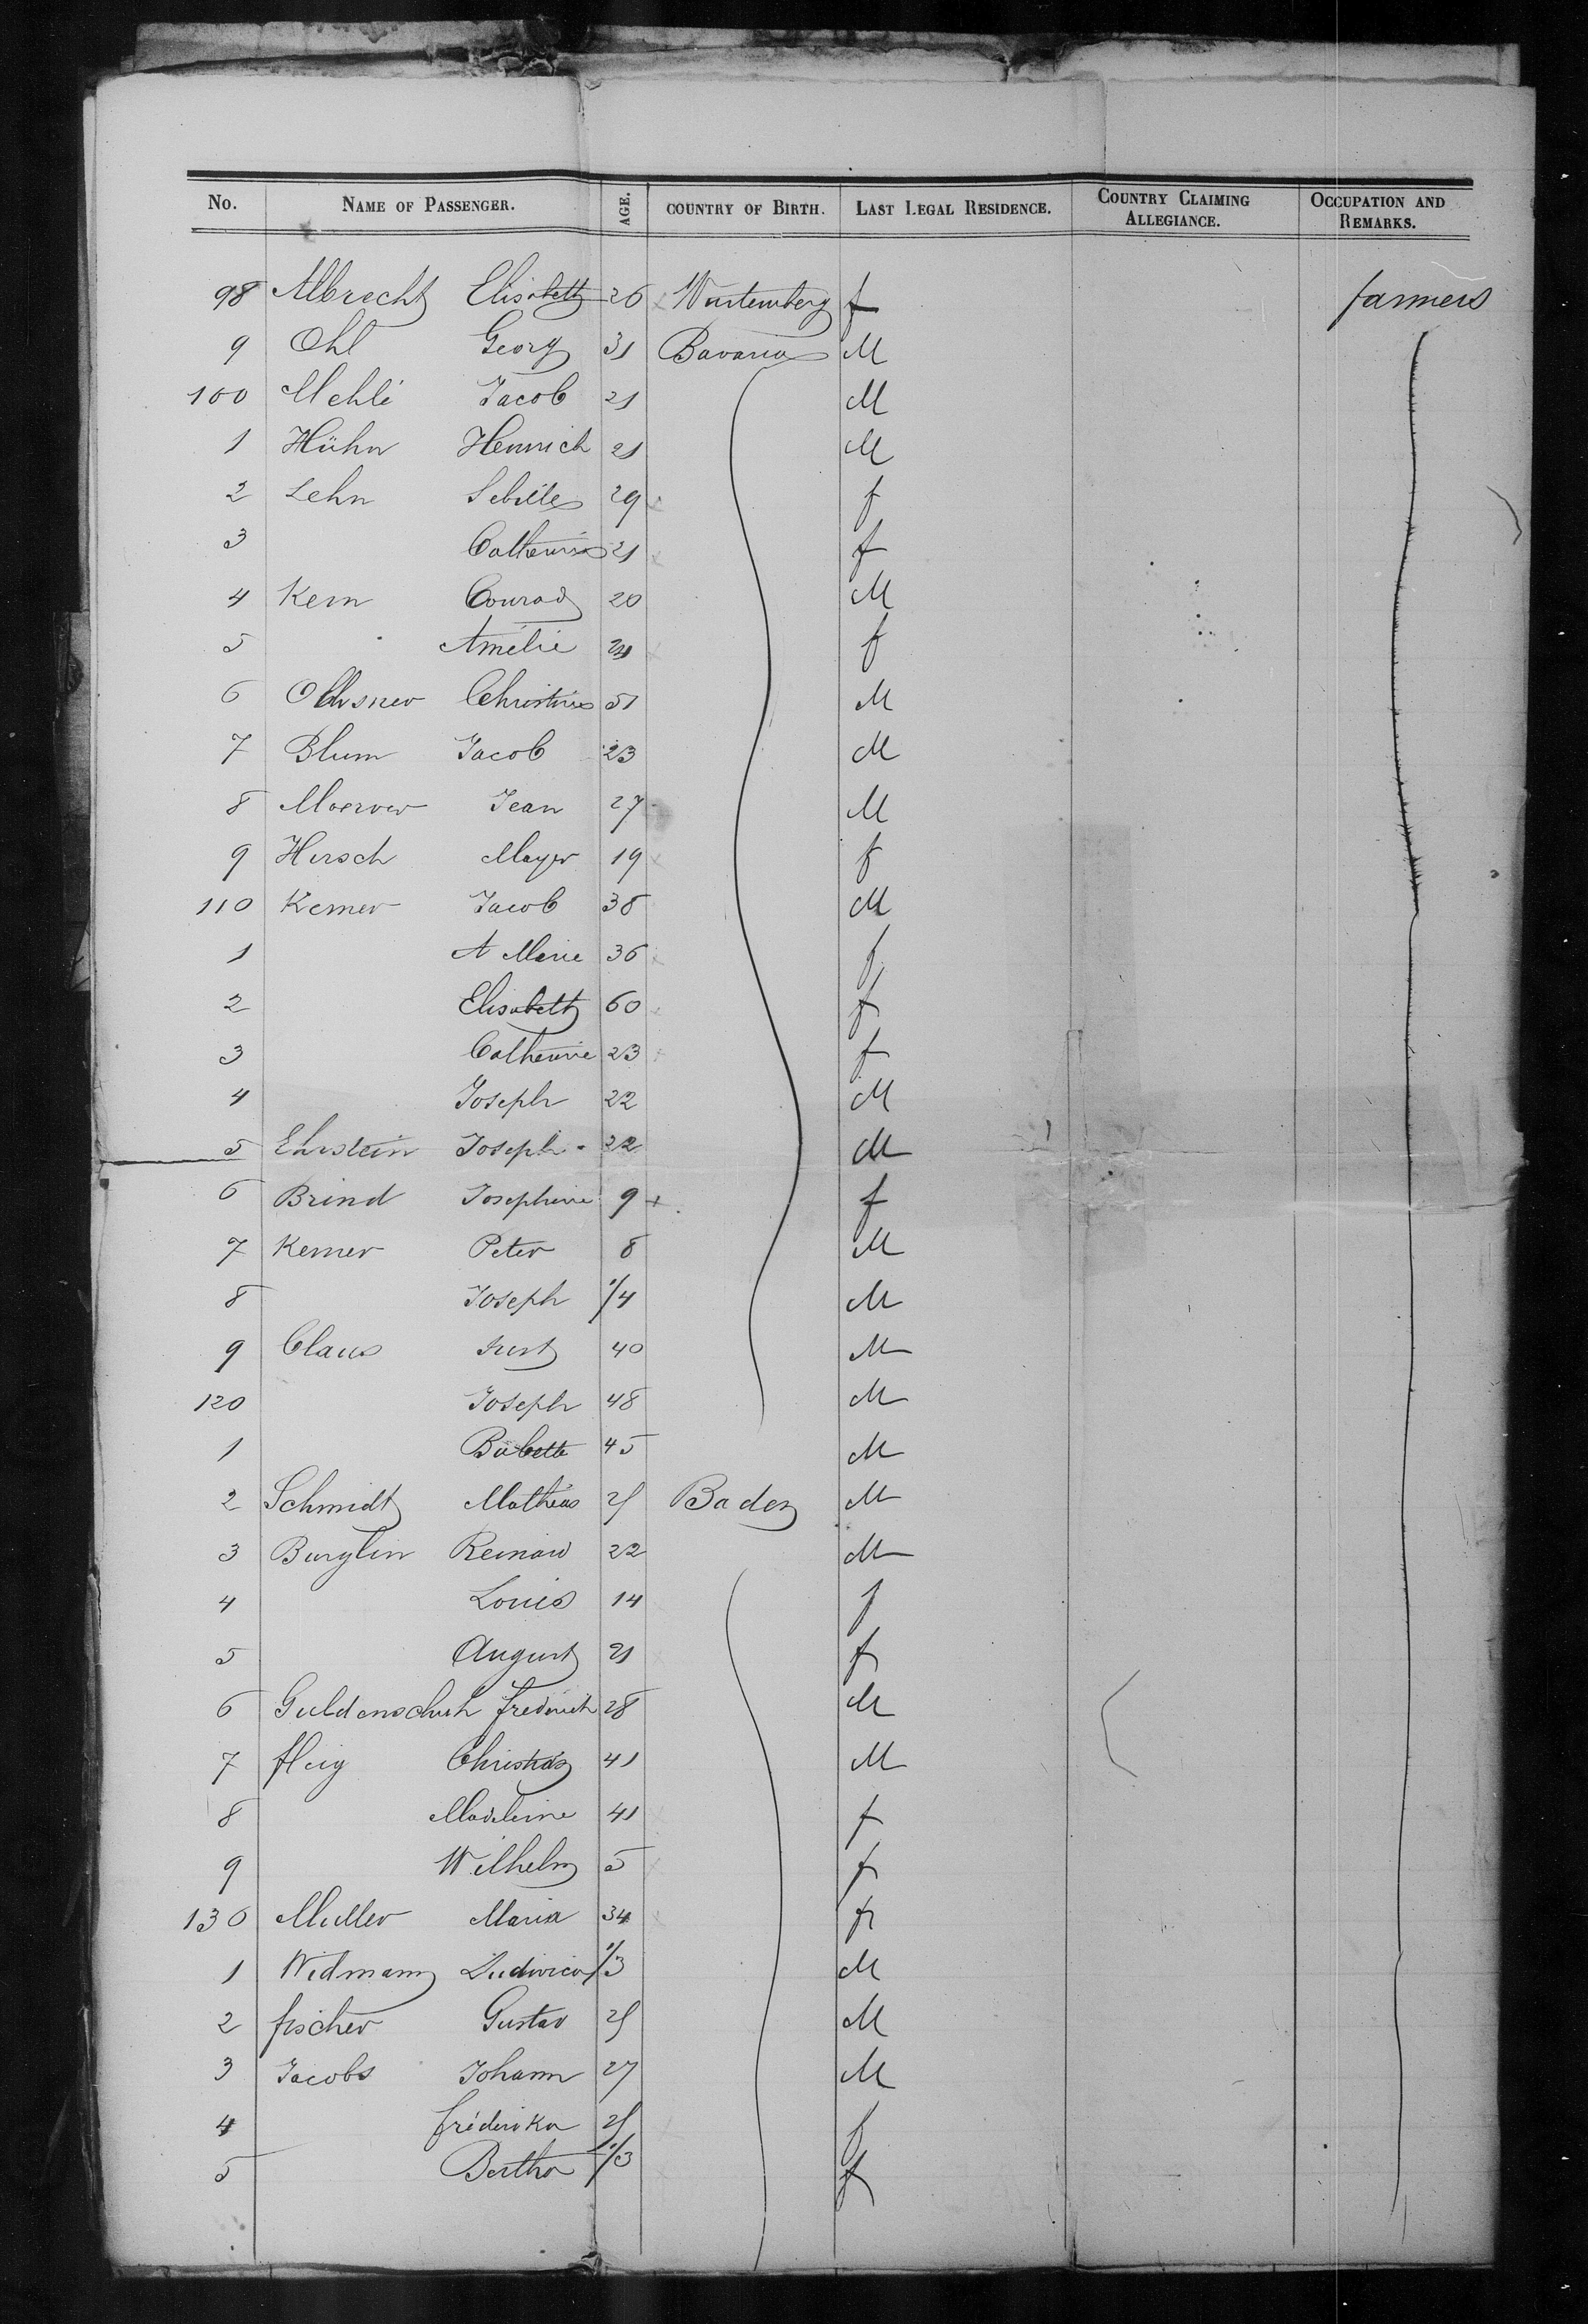 No. NAME OF PASSENGER. AGE. COUNTRY OF BIRTH. LAST LEGAL RESIDENCE. COUNTRY CLAIMING ALLEGIANCE. OCCUPATION AND REMARKS.
98 Albrecht Elisabeth 26 Wurtemberg f farmers
9 Ohl Georg 31 Bavaria M
100 Mehli Jacob 21 M
1 Hühn Henrich 21 M
2 Lehn 29 f
3 Catherine 21 f
4 Kern Conrad 20 M
5 Amélie 24 f
6 Christine 51 M
7 Blum Jacob 23 M
8 Jean 27 M
9 Hirsch Mayer 19 f
110 Kerner Jacob 38 M
1 A Marie 36 f
2 Elisabeth 60 f
3 Catherine 23 f
4 Joseph 22 M
5 Ehrstein Joseph 22 M
6 Brind Josephine 9 f
7 Kerner Peter 8 M
8 Joseph 1/4 M
9 Claus Just 40 M
120 Joseph 48 M
1 Babette 45 M
2 Schmidt Matheas 25 Baden M
3 Burglin Reinard 22 M
4 Louis 14 f
5 August 21 f
6 Guldenschuh frederich 28 M
7 fleig Christian 41 M
8 Madeleine 41 f
9 Wilhelm 5 f
130 Muller Maria 34 f
1 Widmann Ludwica 1/3 M
2 fischer Gustav 25 M
3 Jacobs Johann 27 M
4 fréderika 25 f
5 Bertha 1/3 f